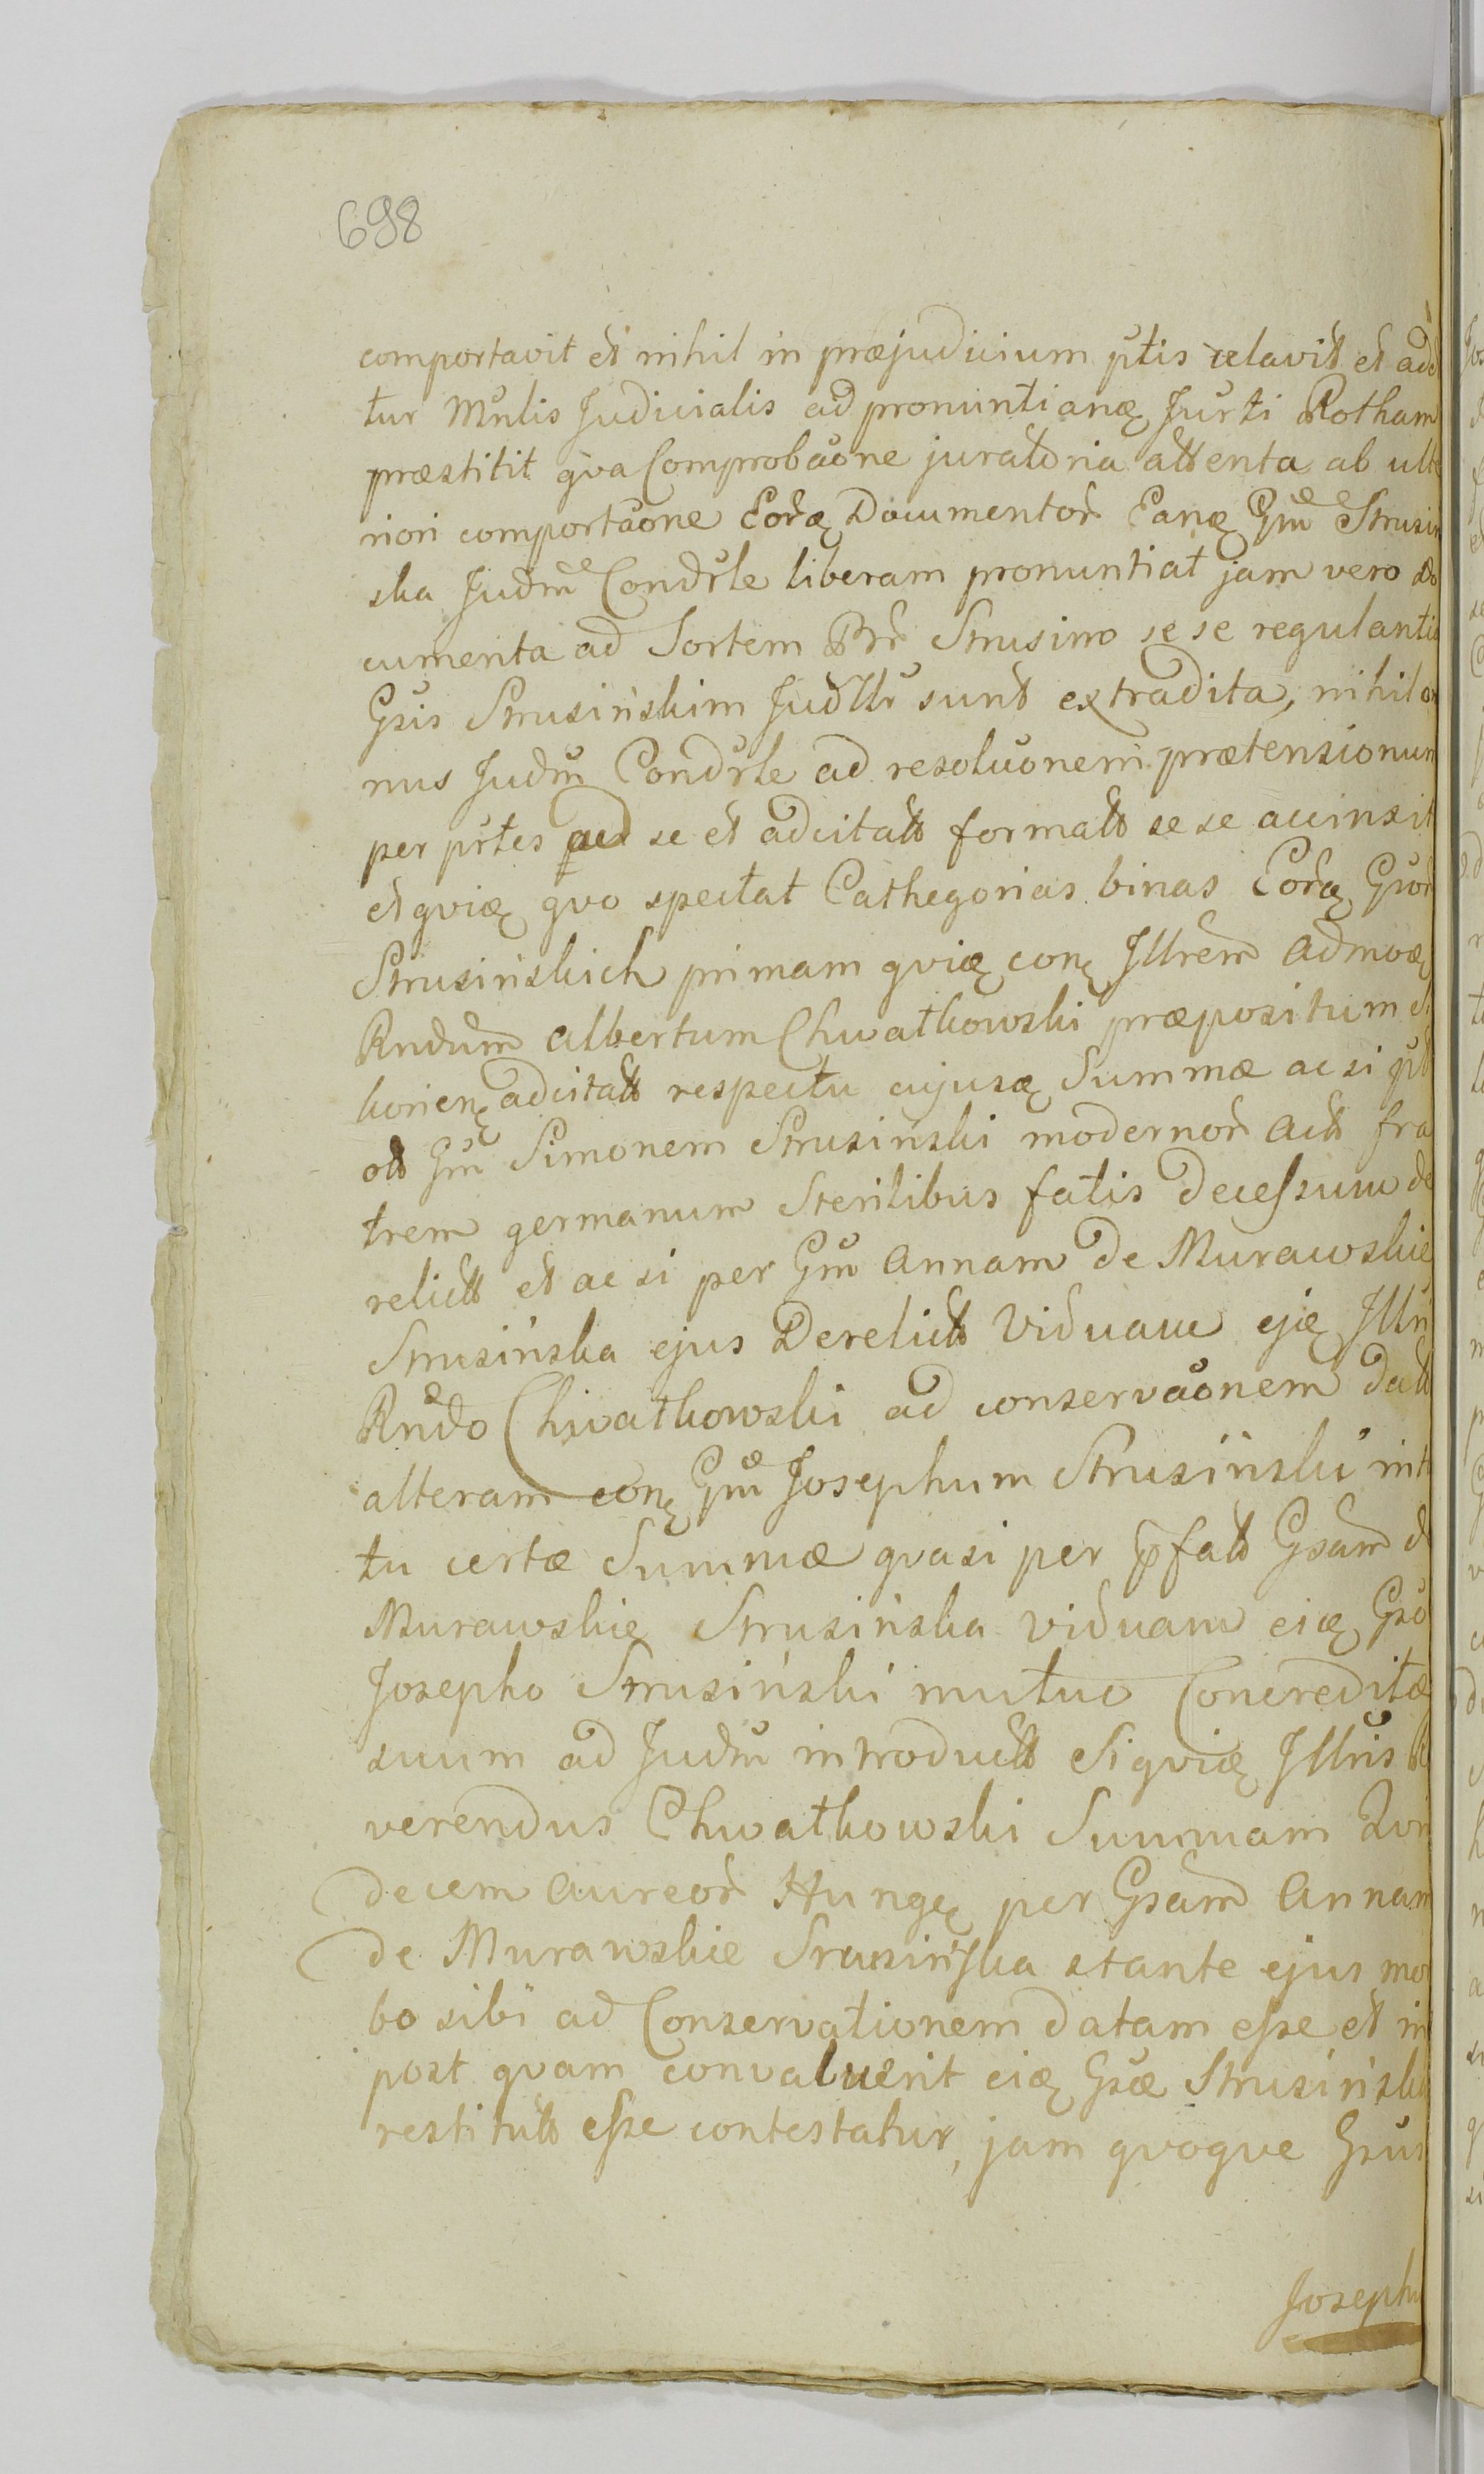 698
comportavit et nihil in præjudicium ptis celavit et add
tur Mnlis Judicialis ad pronuntianę Jurti Rotham
præstitit qva Comprobaone juratoria attenta ab ulte
riori comportaone Eorę Documentor Eanę Gm Strusin
ska Judm Condrle liberam pronuntiat jam vero do
cumenta ad Sortem Br Strusino se se regulantia
Gsis Strusińskim Judllr sunt extradita, nihilo
nus Judm Condrle ad resoluonem prætensionum
per prtes se et adcitatt formatt se se accinxit
et qvię qvo spectat Cathegorias binas Eorę Gsor
Strusińskich primam qvię conę Jllrem admoę
Rndum Albertum Chwatkowski præpositum
korienę adcitatt respectu cujusę Summæ ac si
ott Gm Simonem Strusiński modernor Actt fra
trem germanum Sterilibus fatis decessum de
relictt et ac si per Gm Annam de Murawskie
Strusińska ejus Derelictt Viduam eję Jllri
Rndo Chwatkowski ad conservaonem datt
alteram conę Gm Josephum Strusiński int
tu certæ Summæ qvasi per pfatt Gsam d
Murawskie Strusińska viduam eię Gso
Josepho Strusiński mutuo Concreditæ
suum ad Judm introductt Siqvię Jllris R
verendus Chwatkowski Summam Qvin
decem aureor Hungę per Gsam Annam
de Murawskie Strusińska stante ejus mor
bo sibi ad Conservationem datam esse et in
post qvam convaluerit eię Gsæ Strusińska
restitutt esse contestatur, jam qvoqve Gsus
Josephu